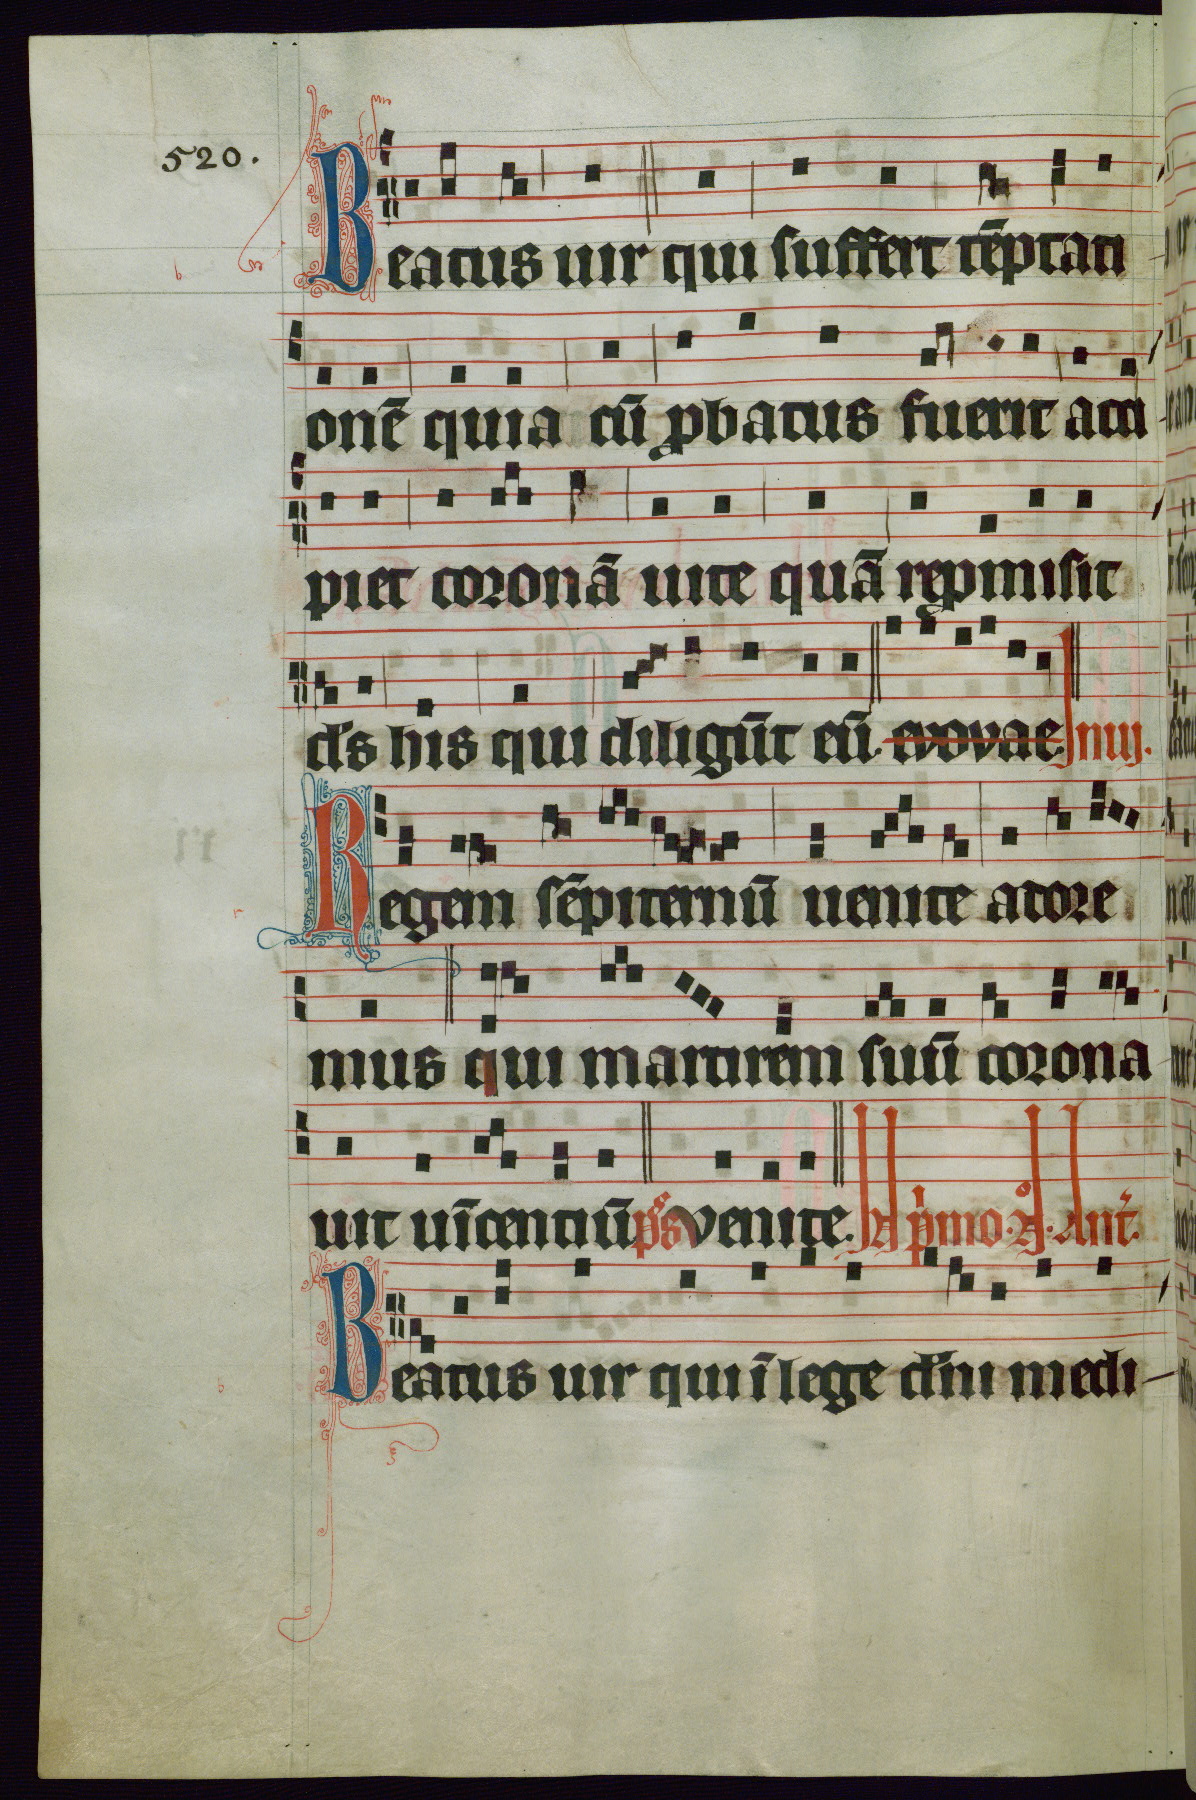 520.
Beatus uir qui suffert tēptati
onē quia cū ꝓbatus fuerit acci
piet coronā uite quā repmisit
d̄s his qui diligūt eū. evovae. Inuī.
Regem sēpiternū uenite adore
mus qui martirem suū corona
uit uīcentiū p̄s Venite. In p̄mo. N̊. Ant̄.
Beatus uir qui ī lege dn̄i medi